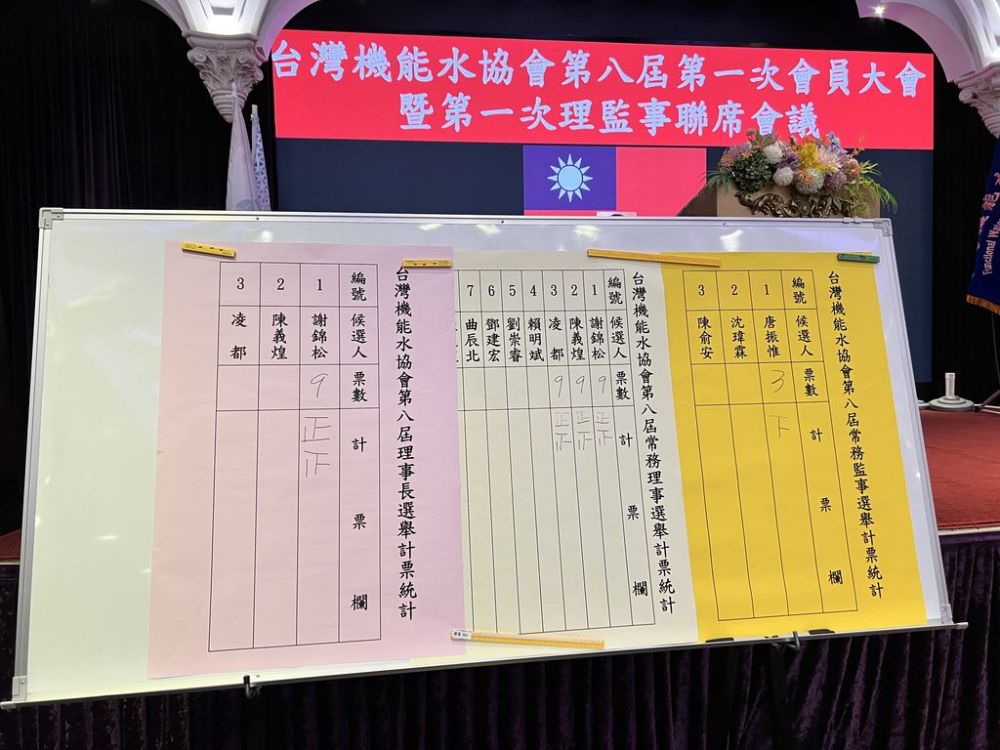 台灣機能水協會第八屆第一次會員大會
暨第一次理監事聯席會議
台灣機能水協會第八屆常務監事選舉計票統計
編號 候選人 票數 計票欄
1 唐振惟 3 下
2 沈瑋霖
3 陳俞安
台灣機能水協會第八屆常務理事選舉計票統計
編號 候選人 票數 計票欄
1 謝錦松 9 正正
2 陳義煌 9 正正
3 凌都 9 正正
4 賴明斌
5 劉崇睿
6 鄧建宏
7 曲辰北
台灣機能水協會第八屆理事長選舉計票統計
編號 候選人 票數 計票欄
1 謝錦松 9 正正
2 陳義煌
3 凌都
Functional